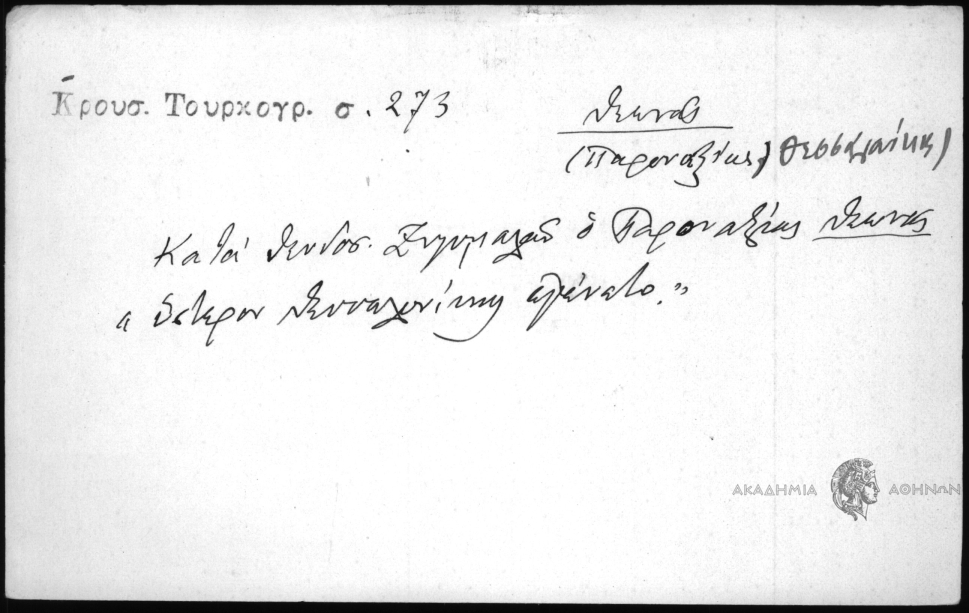 Κρουσ. Τουρκογρ. σ. 273
Θεωνάς
(Παροναξίας) Θεσσαλονίκης)
Κατά Θεοδοσ. Ζυγομαλάν ὁ Παροναξίας Θεωνάς
"ὕστερον Θεσσαλονίκης ἐγένετο."
ΑΚΑΔΗΜΙΑ ΑΘΗΝΩΝ